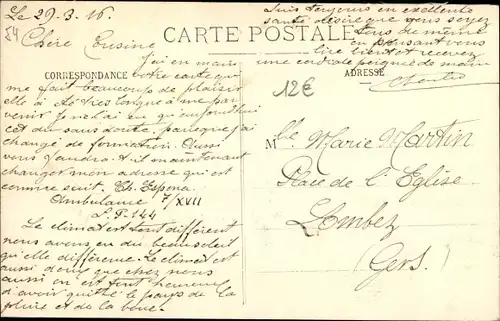 Le 29.3.16
Suis toujours en excellente
santé désire que vous soyez
tous de même
en pensant vous
lire bientôt et recevez
une cordiale poignée de main
CARTE POSTALE
54
Chère Cousine
J'ai en main
CORRESPONDANCE
ADRESSE
votre carte qui
me fait beaucoup de plaisir
elle a été très longue a me par
venir je ne l'ai eu qu'aujourd'hui
cet du sans doute, parceque j'ai
changé de formation. Aussi
vous faudra t il maintenant
changer mon adresse qui est
comme suit. Ch.
Ambulance 7/XVII
S.P. 144
Le climat est tout différent
nous avons eu du beau soleil
qu'elle différence. Le climat est
aussi doux que chez nous
aussi on est tout heureux
d'avoir quitté le pays de la
pluie et de la boue.
12€
Mlle Marie Martin
Place de l'Eglise
Lombez
Gers